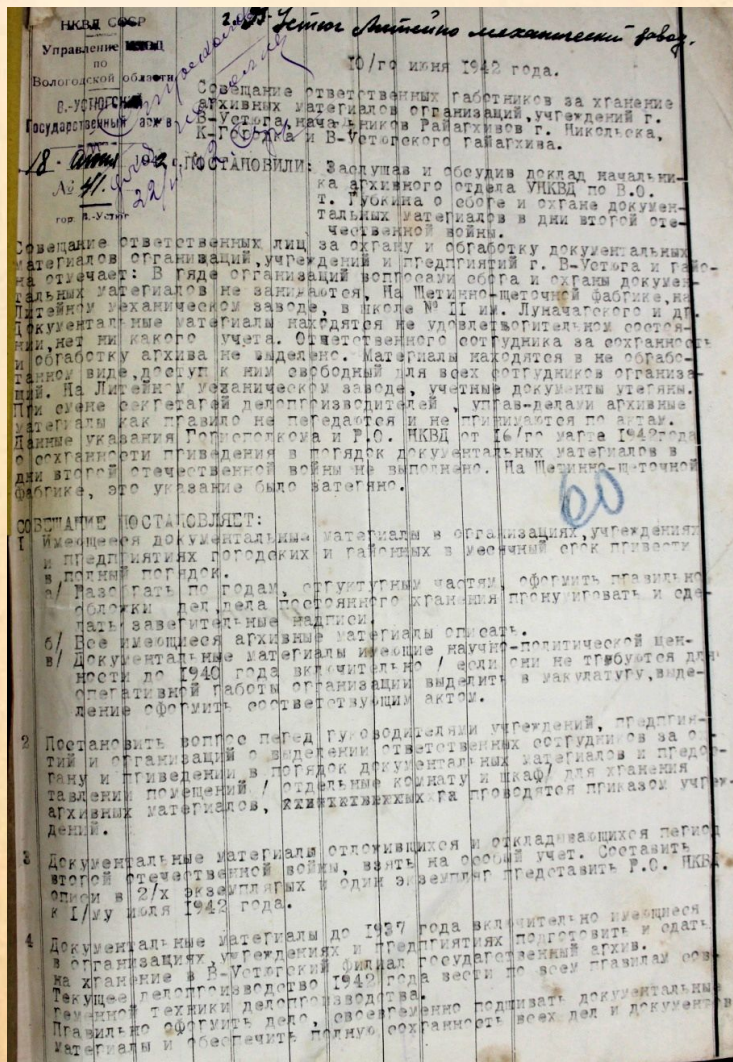 НКВД СССР
Управление НКВД
по
Вологодской области
В.-УСТЮГСКИЙ
Государственный архив
18.
№ 41.
гор. В.-Устюг
22/
г. В-Устюг Литейно механический завод.
10/го июня 1942 года.
Совещание ответственных работников за хранение
архивных материалов организаций,учреждений г.
В-Устюга,начальников Райархивов г. Никольска,
К-Городка и В-Устюгского райархива.
ПОСТАНОВИЛИ: Заслушав и обсудив доклад начальни-
ка архивного отдела УНКВД по В.О.
т. Губкина о сборе и охране докумен-
тальных материалов в дни второй оте-
чественной войны.
Совещание ответственных лиц за охрану и обработку документальных
материалов организаций,учреждений и предприятий г. В-Устюга и райо-
на отмечает: В ряде организаций вопросами сбора и охраны докумен-
тальных материалов не занимаются, На Щетинно-щеточной фабрике,на
Литейном механическом заводе, в школе № II им. Луначарского и др.
Документальные материалы находятся не удовлетворительном состоя-
нии,нет ни какого учета. Ответственного сотрудника за сохранность
и обработку архива не выделено. Материалы находятся в не обрабо-
танном виде,доступ к ним свободный для всех сотрудников организа-
ций. На Литейном механическом заводе, учетные документы утеряны.
При смене секретарей делопроизводителей , управ-делами архивные
материалы как правило не передаются и не принимаются по актам.
Данные указания Горисполкома и Р.О. НКВД от 16/го марта 1942года
о сохранности приведения в порядок документальных материалов в
дни второй отечественной войны не выполнено. На Щетинно-щеточной
фабрике, это указание было затеряно.
60
СОВЕЩАНИЕ ПОСТАНОВЛЯЕТ:
I Имеющееся документальные материалы в организациях,учреждениях
и предприятиях городских и районных в месячный срок привести
в полный порядок.
а/ Разобрать по годам, структурным частям, оформить правильно
обложки дел,дела постоянного хранения пронумировать и сде-
лать заверительные надписи.
б/ Все имеющиеся архивные материалы описать.
в/ Документальные материалы имеющие научно-политической цен-
ности до 1940 года включительно / если они не требуются для
оперативной работы организации выделить в макулатуру,выде-
ление оформить соответствующим актом.
2 Поставить вопрос перед руководителями учреждений, предприя-
тий и организаций о выделении ответственных сотрудников за ох-
рану и приведении в порядок документальных материалов и предос-
тавлении помещений / отдельные комнату и шкаф/ для хранения
архивных материалов, проводятся приказом учреж-
дений.
3 Документальные материалы отложившихся и откладывающихся период
второй отечественной войны, взять на особый учет. Составить
описи в 2/х экземплярах и один экземпляр представить Р.О. НКВД
к I/му июля 1942 года.
4 Документальные материалы до 1937 года включительно имеющиеся
в организациях,учреждениях и предприятиях подготовить и сдать
на хранение в В-Устюгский филиал государственный архив.
Текущее делопроизводство 1942 года вести по всем правилам сов-
ременной техники делопроизводства.
Правильно оформить дело, своевременно подшивать документальные
материалы и обеспечить полную сохранность всех дел и документов